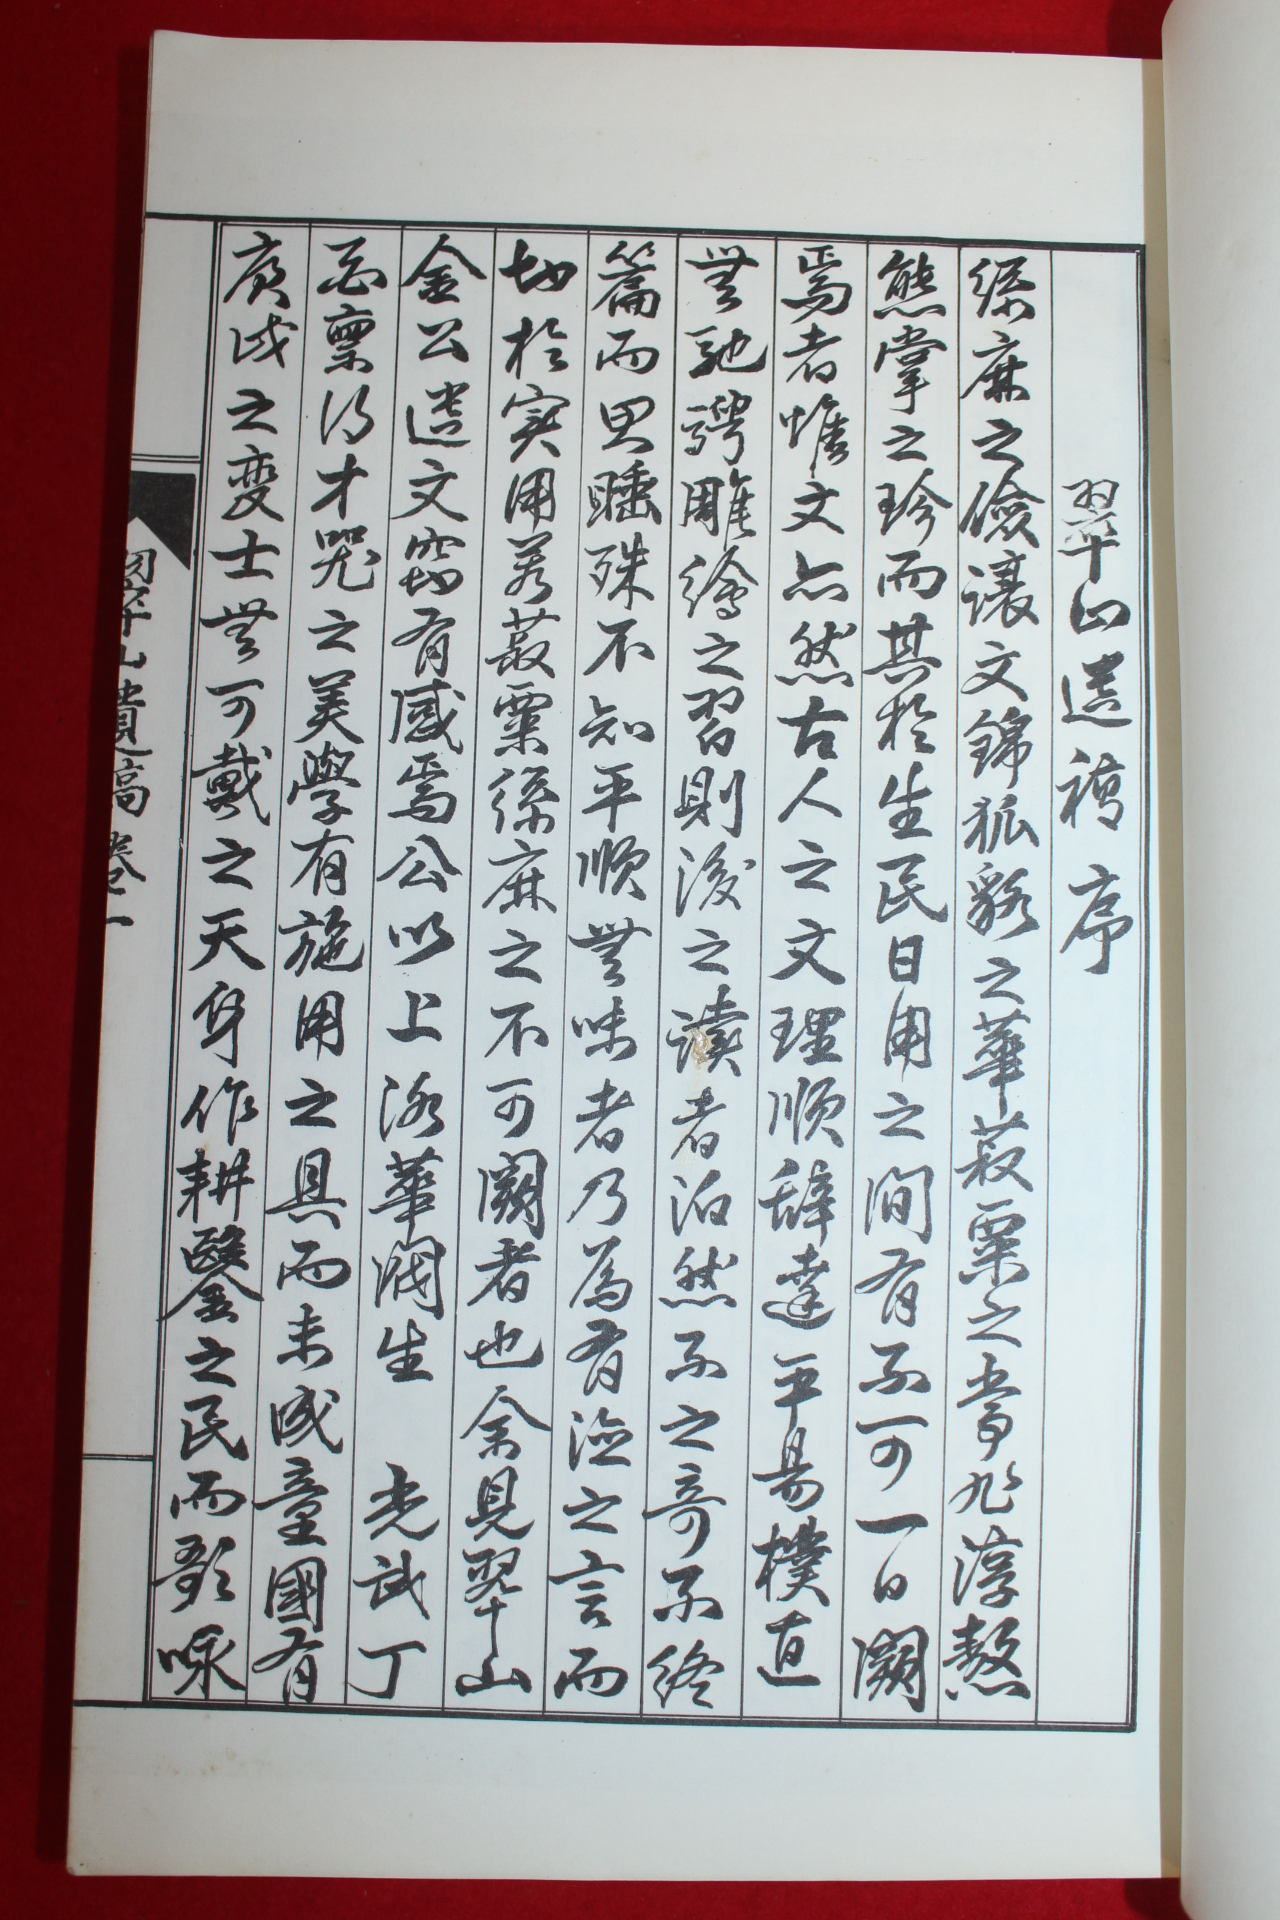 翠山遺稿序
絲麻之儉讓文錦狐貉之華菽粟之常非淳熬
熊掌之珍而其於生民日用之間有不可一日闕
焉者惟文亦然古人之文理順辭達平易樸直
無馳騁雕繪之習則後之讀者泊然不之奇不終
篇而思睡殊不知平順無味者乃爲有滋之言而
切於實用若菽粟絲麻之不可闕者也余見翠山
金公遺文窃有感焉公以上洛華閥生 光武丁
禀得才器之美學有施用之具而未成童國有
庚戌之变士無可戴之天身作耕鑿之民而歌咏
翠山遺稿 卷之一